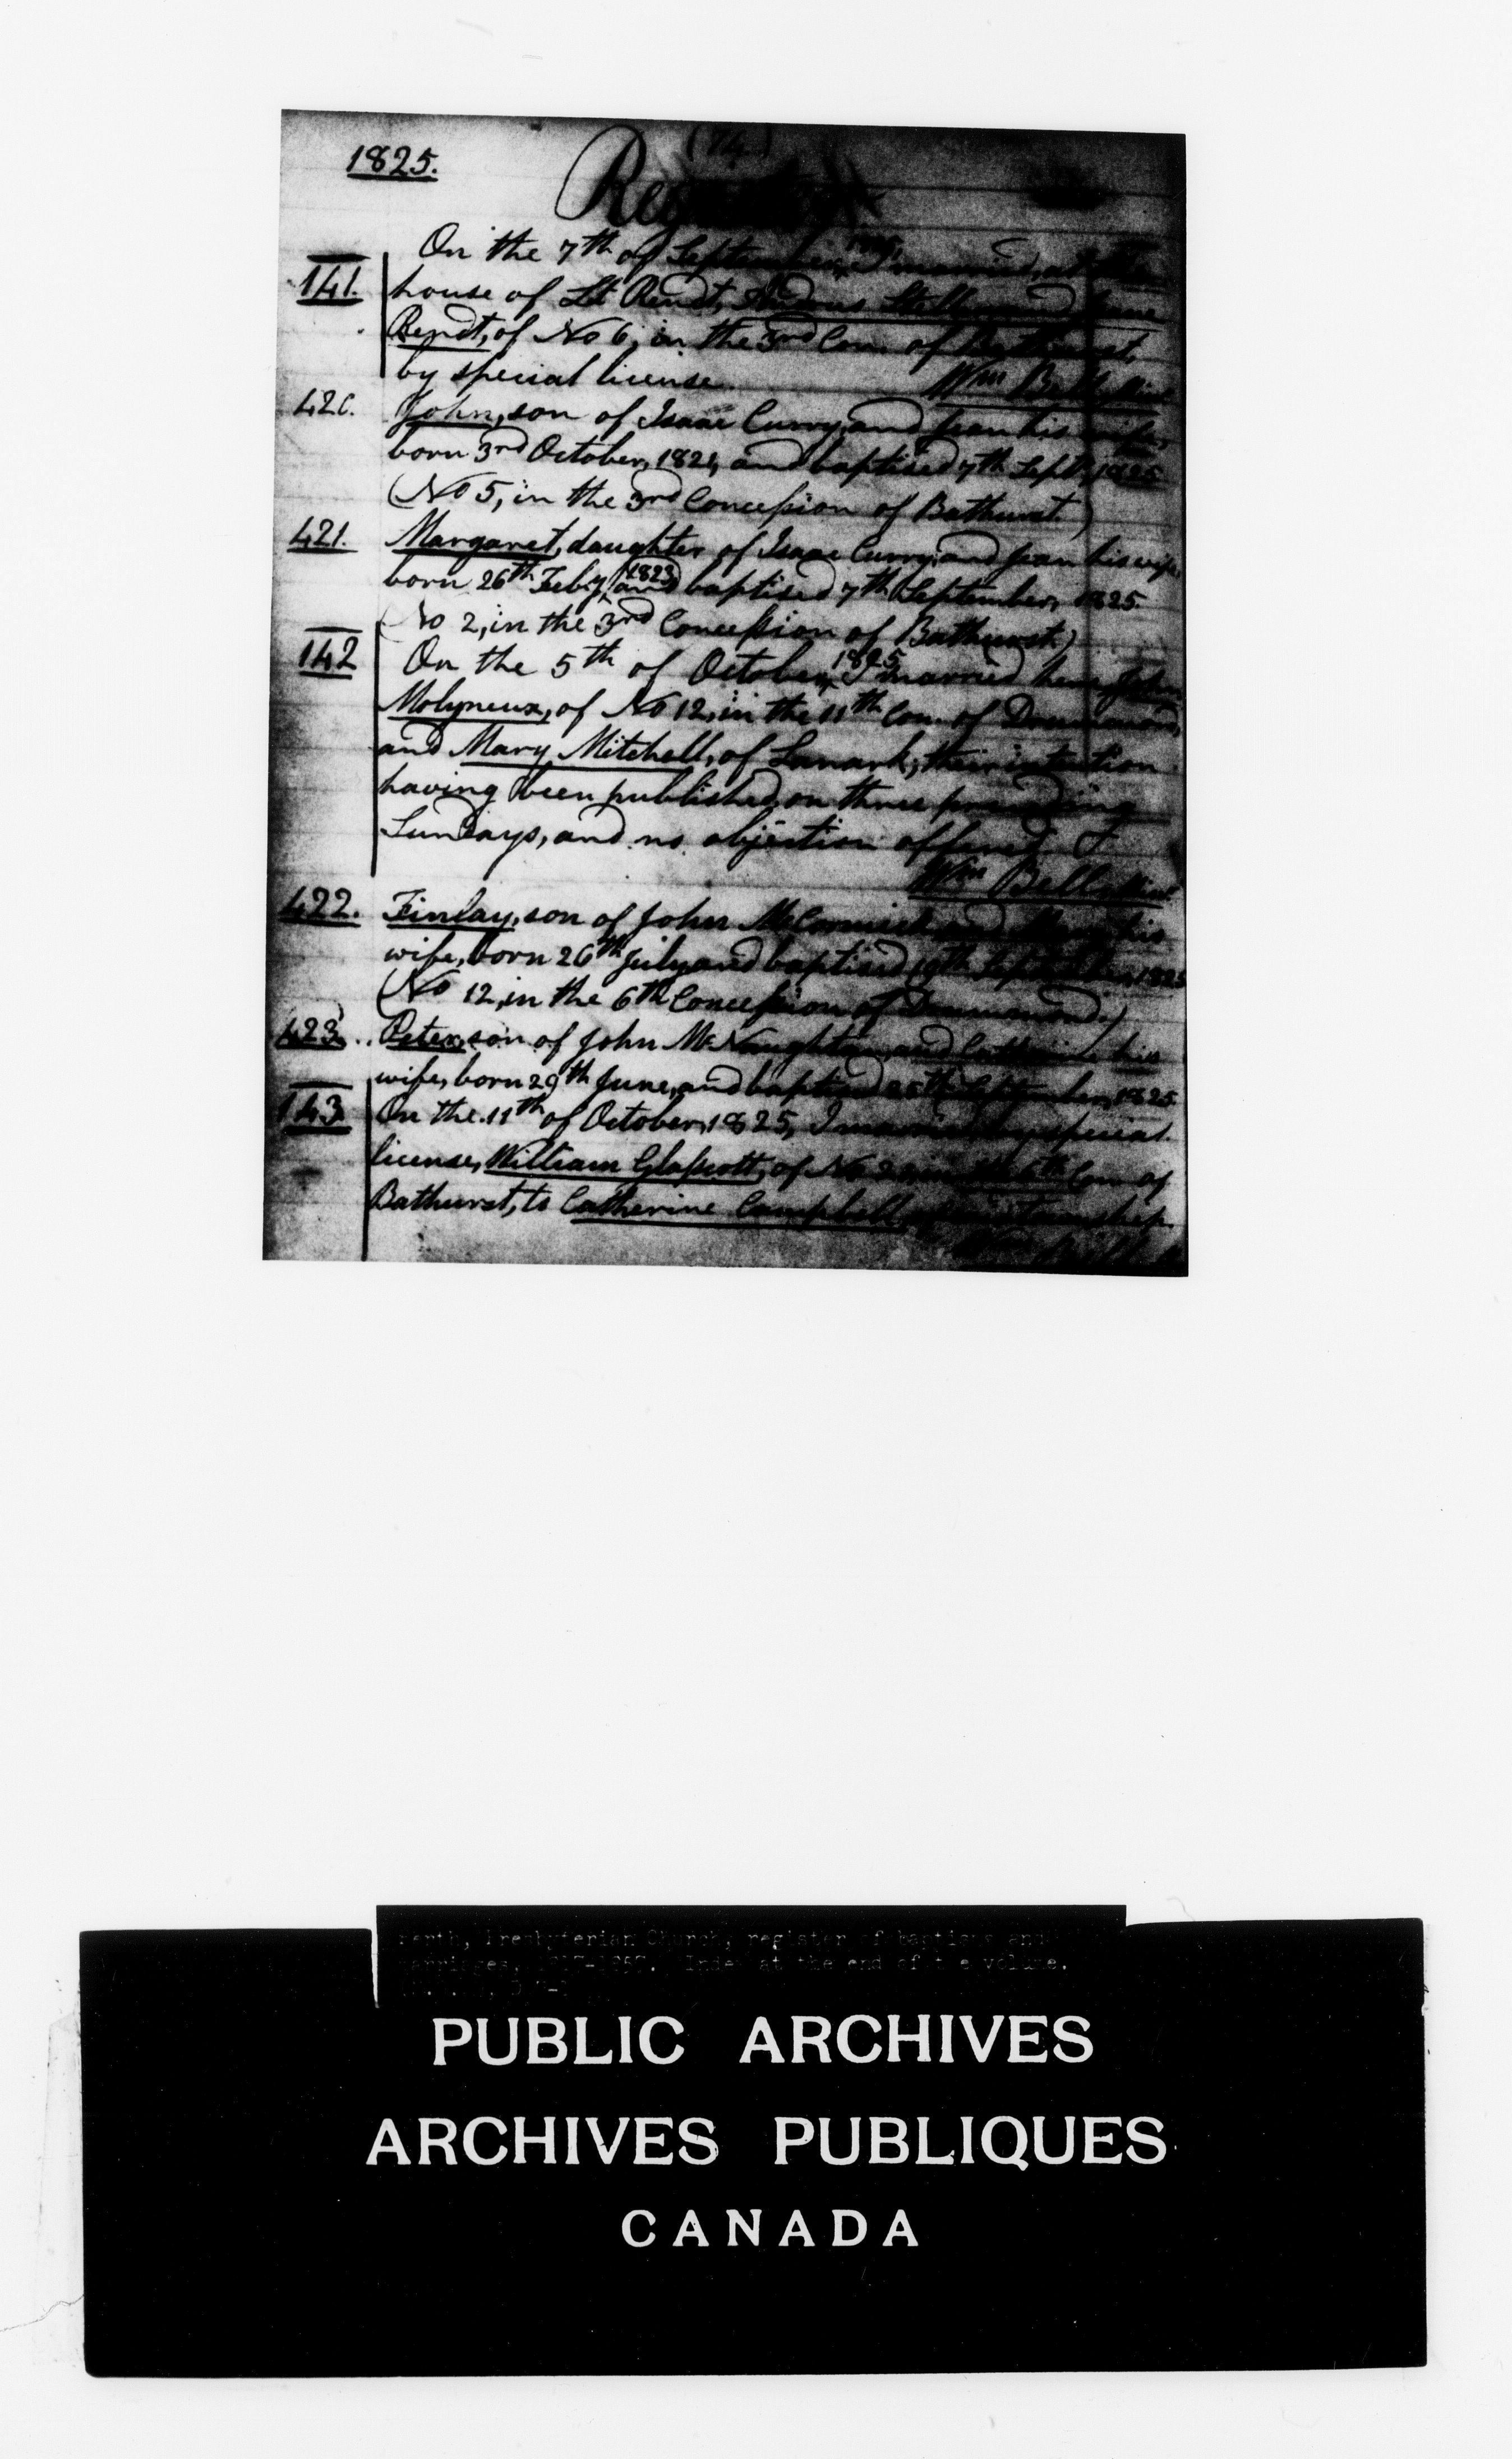 (74.)
1825.
Register
On the 7th of September, 1825, I married, at the
141. house of Lt Rendt, Andrew and Jane
Rendt, of No 6, in the 3rd Con. of Bathurst,
by special license. Wm Bell, Minr
420. John, son of Isaac Curry, and Jean his wife,
born 3rd October, 1821, and baptised 7th Sept, 1825
(No 5, in the 3rd Concession of Bathurst.)
421. Margaret, daughter of Isaac Curry, and Jean his wife,
born 26th Feby, 1823 and baptised 7th September, 1825.
(No 2, in the 3rd Concession of Bathurst.)
142 On the 5th of October, 1825, I married here John
Molyneux, of No 12, in the 11th Con. of Drummond,
and Mary Mitchell, of Lanark; their intention
having been published on three preceeding
Sundays, and no objection offered.
Wm Bell, Minr
422. Finlay, son of John McCormick and Mary his
wife, born 26th July and baptised 19th September, 1825
(No 12, in the 6th Concession of Drummond.)
423. Peter, son of John McNaughton, and Catherine his
wife, born 29th June, and baptised September, 1825.
143 On the 11th of October, 1825, I married by special
license, William Glascott, of No in the 6th Con. of
Bathurst, to Catherine Campbell, township.
Wm Bell
Perth, Presbyterian Church, register of baptisms and
marriages, 1817-1857. Index at the end of the volume.
PUBLIC ARCHIVES
ARCHIVES PUBLIQUES
CANADA